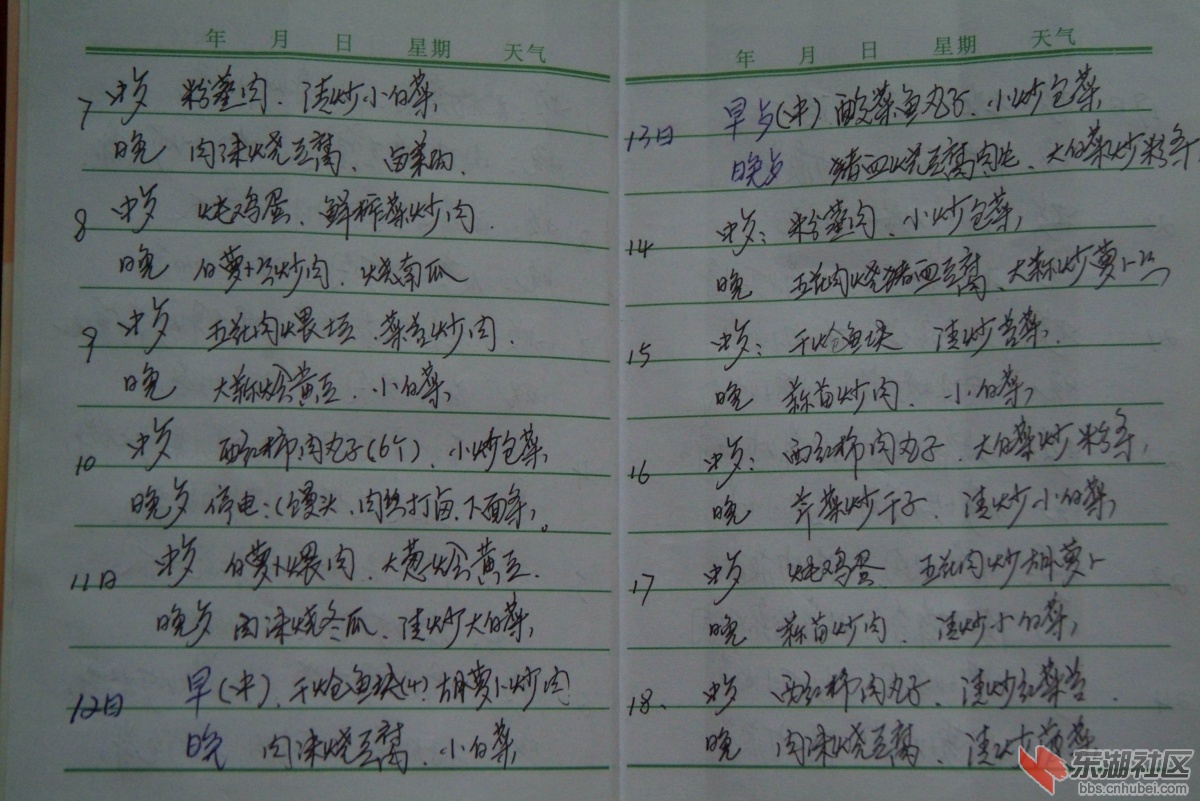 年 月 日 星期 天气
7 中歺 粉蒸肉、清炒小白菜,
晚 肉沫烧豆腐、卤菜
8 中歺 炖鸡蛋、鲜榨菜炒肉.
晚 白萝卜 炒肉、烧南瓜
9 中歺 五花肉煨 、菜苔炒肉.
晚 大蒜烩黄豆、小白菜,
10 中歺 西红柿肉丸子(6个)、小炒包菜,
晚歺 停电:(馒头、肉丝打卤、下面条)。
11日 中歺 白萝卜煨肉、大葱烩黄豆.
晚歺 肉沫烧冬瓜、清炒大白菜,
12日 早(中)、干烩鱼块(4) 胡萝卜炒肉
晚 肉沫烧豆腐、小白菜,
年 月 日 星期 天气
13日 早歺(中) 酸菜鱼丸子、小炒包菜,
晚歺 猪血烧豆腐肉 、大白菜炒粉条
14 中歺: 粉蒸肉、小炒包菜,
晚 五花肉烧猪血豆腐、大蒜炒萝卜
15 中歺: 干烩鱼块 清炒苔菜.
晚 蒜苗炒肉、小白菜,
16 中歺: 西红柿肉丸子、大白菜炒粉条,
晚 芹菜炒干子、清炒小白菜,
17 中歺 炖鸡蛋 五花肉炒胡萝卜
晚 蒜苗炒肉、清炒小白菜,
18. 中歺 西红柿肉丸子、清炒红菜苔.
晚 肉沫烧豆腐、清炒
东湖社区
bbs.cnhubei.com